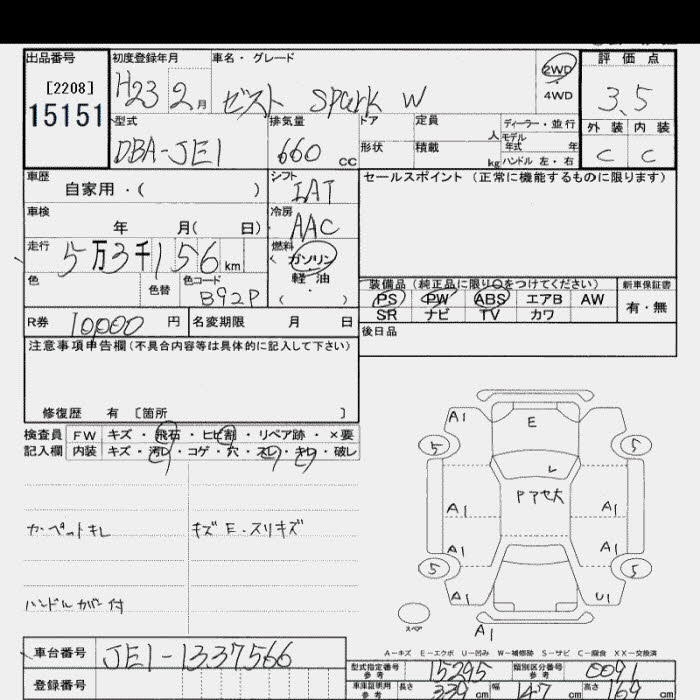 出品番号 初度登録年月 車名・グレード 2WD 評価点
[2208] H23 2月 ゼスト Spark W 4WD 3.5
15151
型式 排気量 ドア 定員 人 ディーラー・並行 外装 内装
DBA-JE1 660 cc 形状 積載 kg モデル年式 年 C C
ハンドル 左・右
車歴 シフト セールスポイント(正常に機能するものに限ります)
自家用・( ) IAT
車検 冷房
年 月( 日) AAC
走行 燃料
5万3千156km ガソリン
軽油
( )
色 色替 色コード B92P
装備品(純正品に限り○をつけてください) 新車保証書
PS PW ABS エアB AW 有・無
SR ナビ TV カワ
R券 10,000円 名変期限 月 日
後日品
注意事項申告欄(不具合内容等は具体的に記入して下さい)
修復歴 有 [箇所 ]
検査員 FW キズ・飛石・ヒビ割・リペア跡・×要
記入欄 内装 キズ・汚レ・コゲ・穴・スレ・キレ・破レ
カーペットキレ キズE・スリキズ
ハンドルカバー付
A1 E
5 5
レ
Pアセ大
A1 A1
A1 A1
5 5
A1 U1
スペア A1
A-キズ E-エクボ U-凹み W-補修跡 S-サビ C-腐食 XX-交換済
車台番号 JE1-1337566
登録番号
型式指定番号 参考 15295 類別区分番号 参考 0091
車庫証明用 参考 長さ 339cm 幅 147cm 高さ 169cm